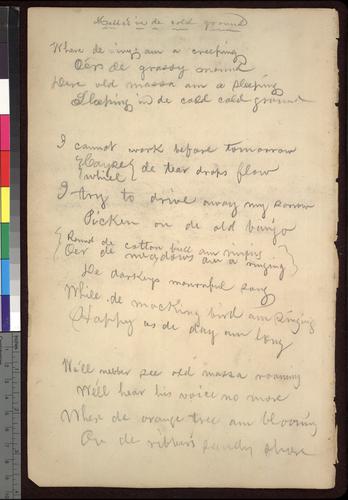 Massa's in de cold ground
Where de ivy am a creeping
O'er de grassy mound
Dere old massa am a sleeping
Sleeping in de cold cold ground
I cannot work before tomorrow
{Cayse} de tear drops flow
{while}
I try to drive away my sorrow
Picken on de old banjo
{Round de cotton am ringing
{Oer de meadows am a ringing}
De darkeys mournful song
While de mocking bird am singing
Happy as de day am long
We'll nebber see old massa roaming
We'll hear his voice no more
Where de orange tree am blooming
On de ribber's sandy shore